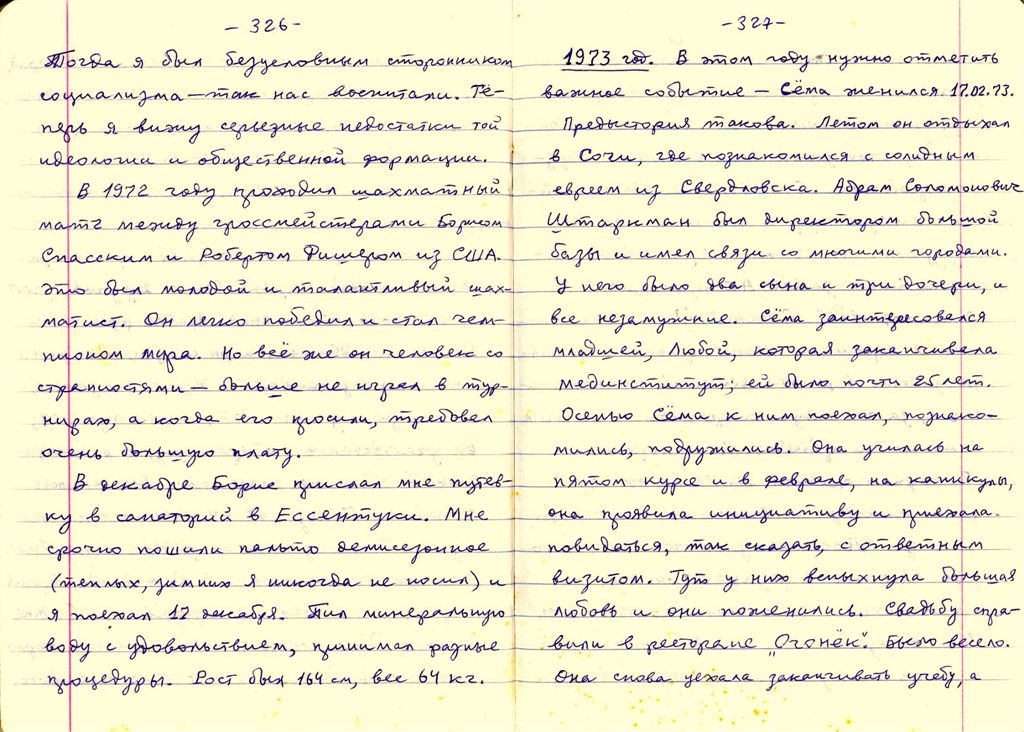 - 326 -
Тогда я был безусловным сторонником
социализма — так нас воспитали. Те-
перь я вижу серьезные недостатки той
идеологии и общественной формации.
В 1972 году проходил шахматный
матч между гроссмейстерами Борисом
Спасским и Робертом Фишером из США.
Это был молодой и талантливый шах-
матист. Он легко победил и стал чем-
пионом мира. Но всё же он человек со
странностями — больше не играл в тур-
нирах, а когда его просили, требовал
очень большую плату.
В декабре Борис прислал мне путёв-
ку в санаторий в Ессентуки. Мне
срочно пошили пальто демисезонное
(теплых, зимних я никогда не носил) и
я поехал 12 декабря. Пил минеральную
воду с удовольствием, принимал разные
процедуры. Рост был 164 см, вес 64 кг.
- 327 -
1973 год. В этом году нужно отметить
важное событие — Сёма женился 17.02.73.
Предыстория такова. Летом он отдыхал
в Сочи, где познакомился с солидным
евреем из Свердловска. Абрам Соломонович
Штаркман был директором большой
базы и имел связи со многими городами.
У него было два сына и три дочери, и
все незамужние. Сёма заинтересовался
младшей, Любой, которая заканчивала
мединститут; ей было почти 25 лет.
Осенью Сёма к ним поехал, познако-
мились, подружились. Она училась на
пятом курсе и в феврале, на каникулы,
она проявила инициативу и приехала
повидаться, так сказать, с ответным
визитом. Тут у них вспыхнула большая
любовь и они поженились. Свадьбу спра-
вили в ресторане „Огонёк". Было весело.
Она снова уехала заканчивать учебу, а